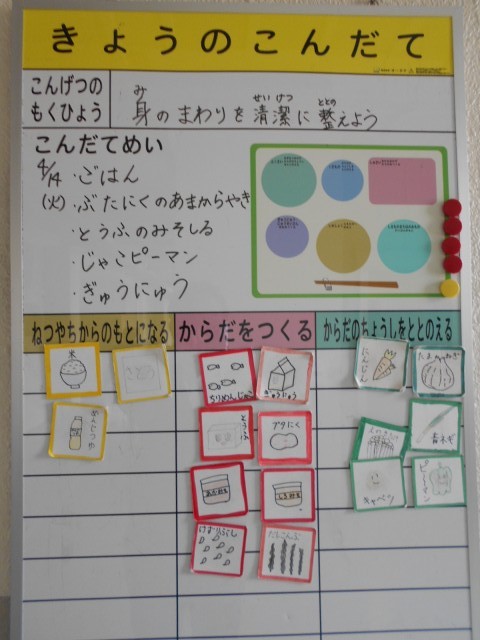 きょうのこんだて
こんげつの
もくひょう
身のまわりを清潔に整えよう
み
せいけつ
ととの
こんだてめい
4/14
(火)
・ごはん
・ぶたにくのあまからやき
・とうふのみそしる
・じゃこピーマン
・ぎゅうにゅう
ねつやちからのもとになる
からだをつくる
からだのちょうしをととのえる
米
ちりめんじゃこ
ぎゅうにゅう
にんじん
たまねぎ
とうふ
ブタにく
青ネギ
キャベツ
ピーマン
あかみそ
しろみそ
けずりぶし
だしこんぶ